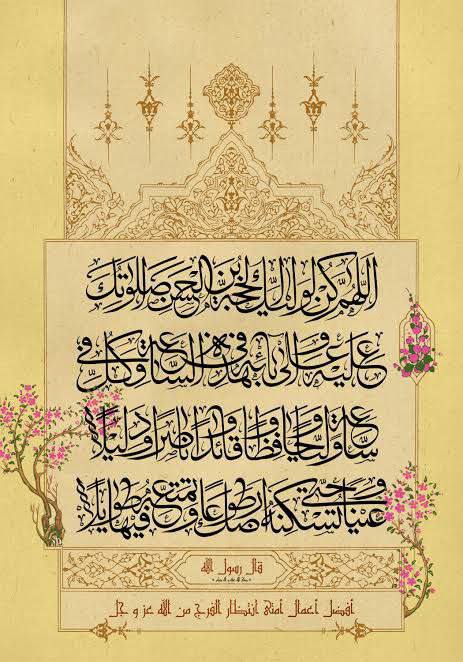 اللهم كن لوليك الحجة بن الحسن صلواتك
عليه وعلى آبائه في هذه الساعة وفي كل
ساعة وليا وحافظا وقائدا وناصرا ودليلا
وعينا حتى تسكنه أرضك طوعا وتمتعه فيها طويلا
قال رسول الله
أفضل أعمال أمتي انتظار الفرج من الله عز و جل